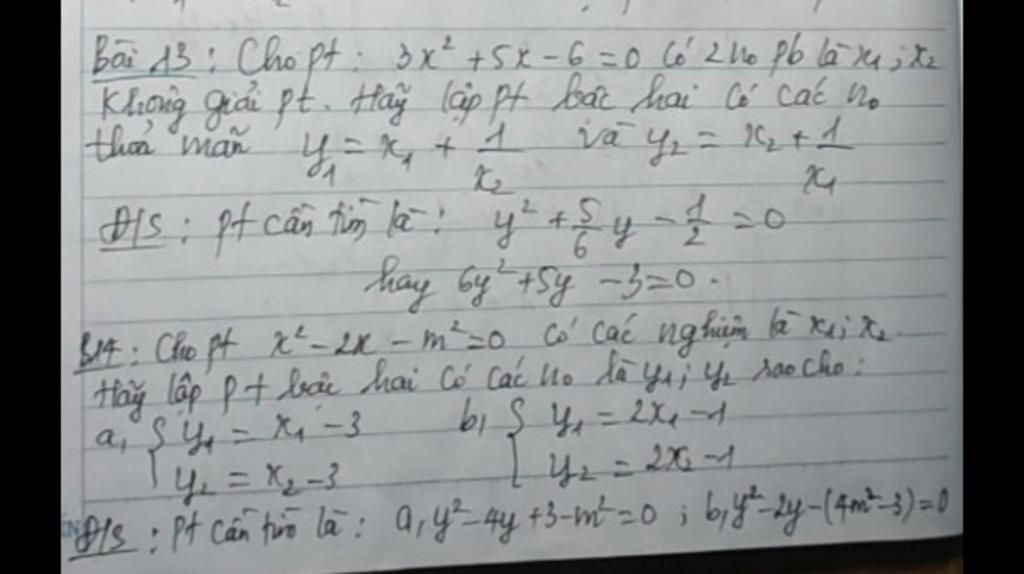 Bài 13 : Cho pt : 3x² + 5x - 6 = 0 có 2 n₀ pb là x₁ ; x₂
Không giải pt. Hãy lập pt bậc hai có các n₀
thoả mãn y₁ = x₁ + 1/x₂ và y₂ = x₂ + 1/x₁
Đ/S : pt cần tìm là : y² + 5/6 y - 1/2 = 0
hay 6y² + 5y - 3 = 0 .
B14 : Cho pt x² - 2x - m² = 0 có các nghiệm là x₁ ; x₂.
Hãy lập pt bậc hai có các n₀ là y₁ ; y₂ sao cho :
a, { y₁ = x₁ - 3 b, { y₁ = 2x₁ - 1
y₂ = x₂ - 3 y₂ = 2x₂ - 1
Đ/S : pt cần tìm là : a, y² - 4y + 3 - m² = 0 ; b, y² - 2y - (4m² - 3) = 0